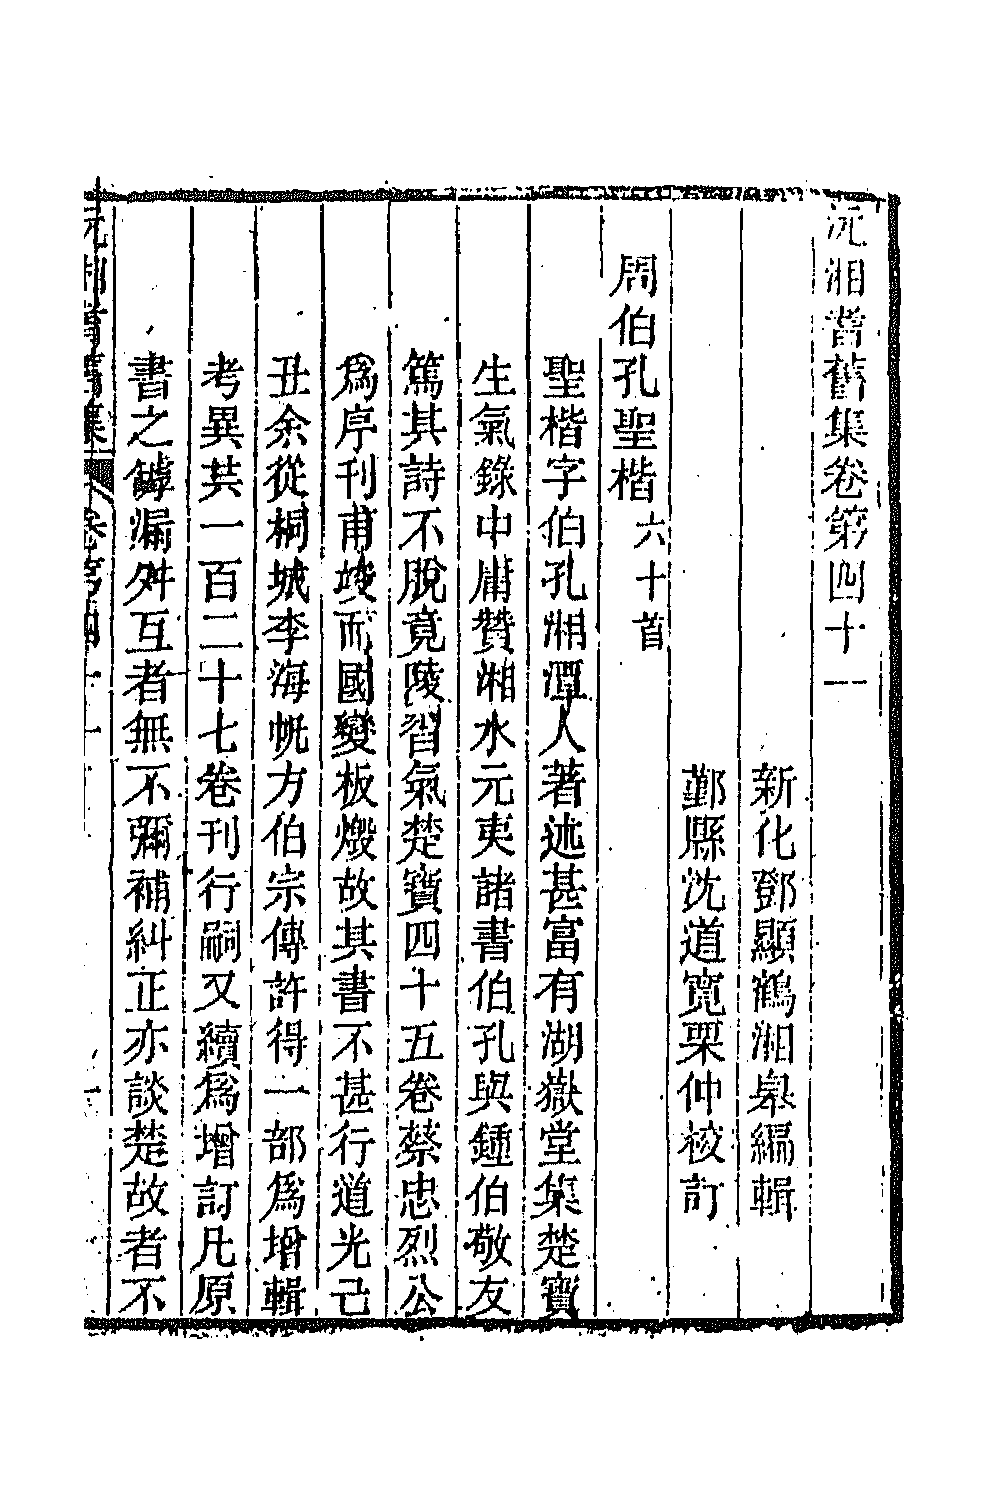 沅湘耆舊集卷第四十一
新化鄧顯鶴湘皋編輯
鄞縣沈道寬栗仲校訂
周伯孔聖楷六十首
聖楷字伯孔湘潭人著述甚富有湖嶽堂集楚寶
生氣錄中庸贊湘水元夷諸書伯孔與鍾伯敬友
篤其詩不脫竟陵習氣楚寶四十五卷蔡忠烈公
爲序刊甫竣而國變板燬故其書不甚行道光己
丑余從桐城李海帆方伯宗傳許得一部爲增輯
考異共一百二十七卷刊行嗣又續爲增訂凡原
書之罅漏舛互者無不彌補糾正亦談楚故者不
沅湘耆舊集 卷第四十一 一